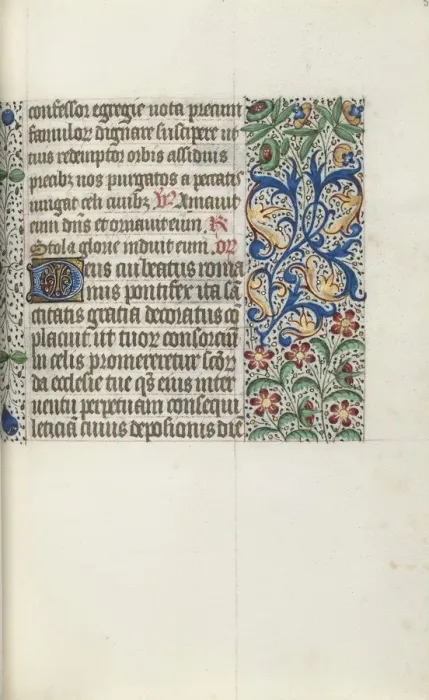 confessor egregie vota precum
famulor dignare suscipere ut
tuus redemptor orbis assiduis
precibz vos purgatos a peccatis
iungat celi civibz. V. Amavit
eum dns et ornavit eum. R
Stola glorie induit eum. or
Deus cui beatus roma
nus pontifex ita sā
ctitatis gratia decoratus co
placuit ut tuor consorciū
in celis promereretur scōr
da ecclesie tue qs eius inter
ventu perpetuam consequi
leticiā cuius deposicionis die